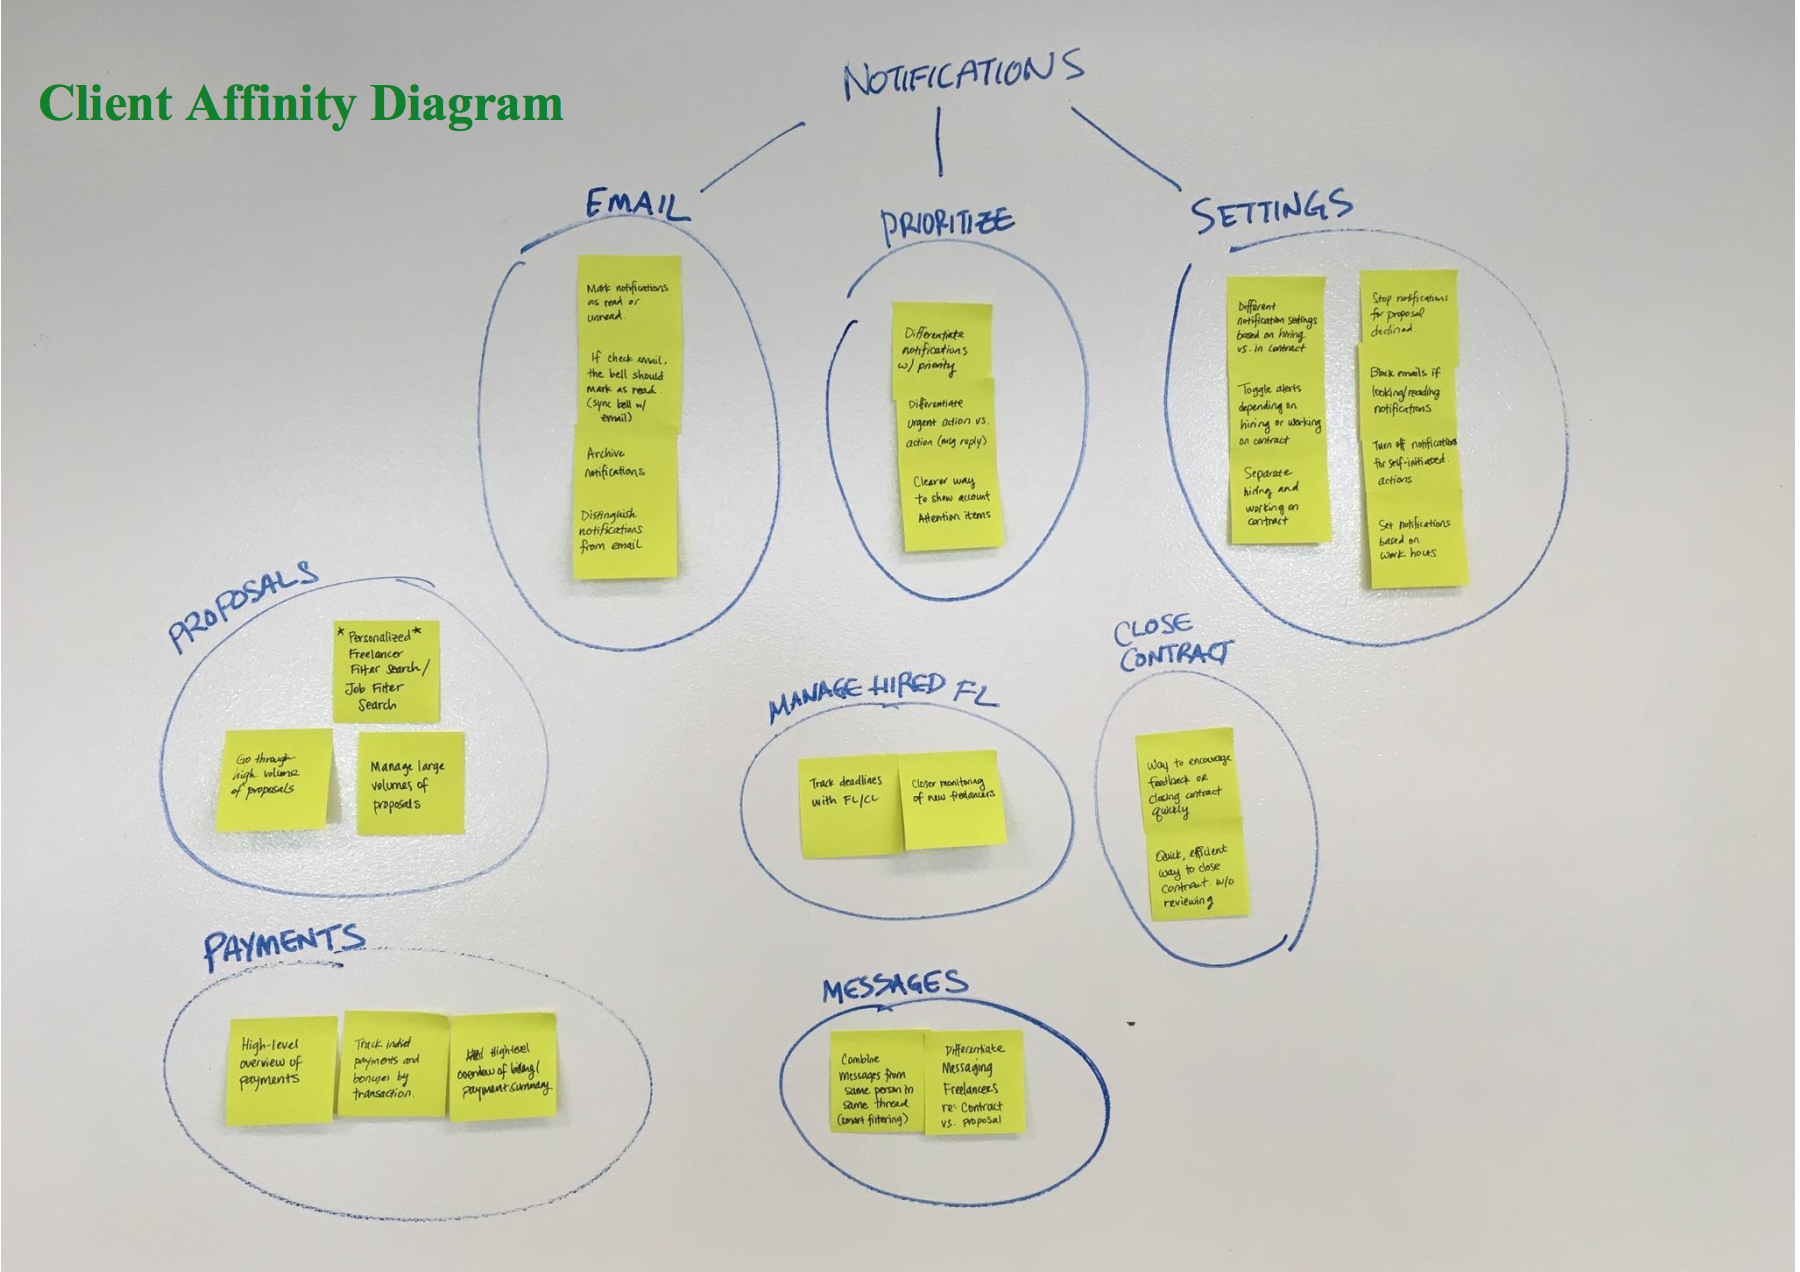 Client Affinity Diagram
NOTIFICATIONS
EMAIL
Mark notifications
as read or
unread.
If check email,
the bell should
mark as read.
(sync bell w/
email)
Archive
notifications
Distinguish
notifications
from email
PRIORITIZE
Differentiate
notifications
w/ priority
Differentiate
urgent action vs.
action (msg reply)
Clearer way
to show account
Attention items
SETTINGS
Different
notification settings
based on hiring
vs. in contract
Toggle alerts
depending on
hiring or working
on contract
Separate
hiring and
working on
contract
Stop notifications
for proposal
declined.
Block emails if
looking/reading
notifications
Turn off notifications
for self-initiated
actions
Set notifications
based on
work hours
PROPOSALS
*Personalized*
Freelancer
Filter Search/
Job Filter
Search
Go through
high volume
of proposals
Manage large
volumes of
proposals
MANAGE HIRED FL
Track deadlines
with FL/CL
Closer monitoring
of new freelancers
CLOSE
CONTRACT
Way to encourage
feedback or
closing contract
quickly
Quick, efficient
way to close
contract w/o
reviewing
PAYMENTS
High-level
overview of
payments
Track
payments and
bonuses by
transaction.
High level
overview of billing/
payment summary
MESSAGES
Combine
Messages from
same person in
same thread
(smart filtering)
Differentiate
Messaging
Freelancers
re: Contract
vs. proposal